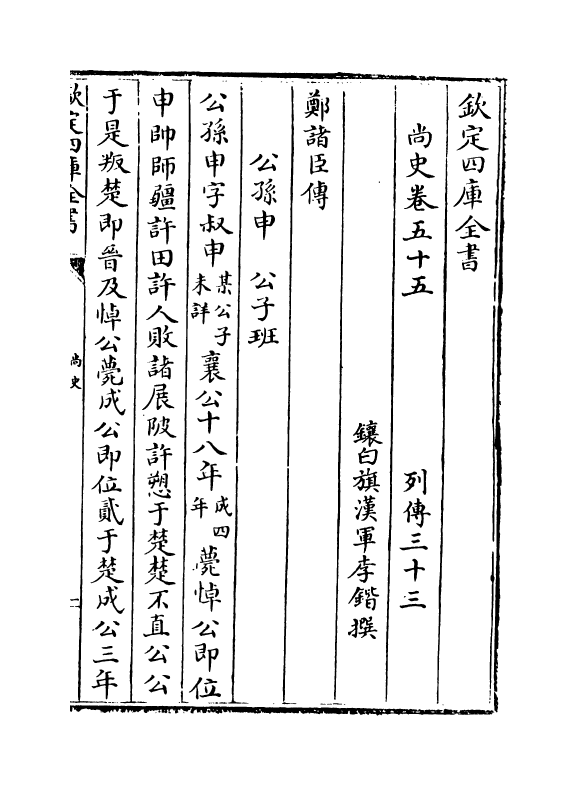 欽定四庫全書
尚史卷五十五 列傳三十三
鑲白旗漢軍李鍇撰
鄭諸臣傳
公孫申 公子班
公孫申字叔申某公子未詳襄公十八年成四年薨悼公即位
申帥師疆許田許人敗諸展陂許愬于楚楚不直公公
于是叛楚即晉及悼公薨成公即位貳于楚成公三年
欽定四庫全書 尚史 一